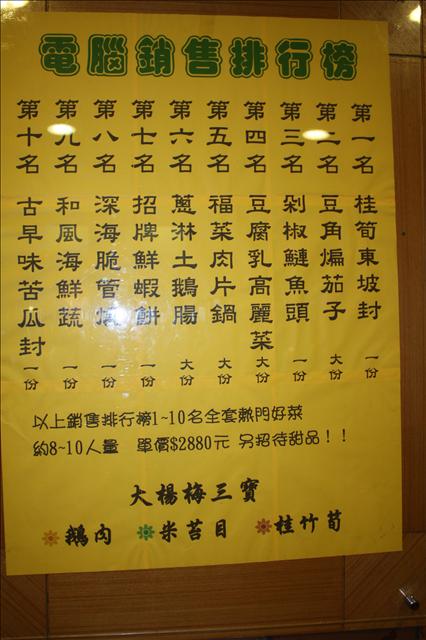 電腦銷售排行榜
第一名 桂筍東坡封 一份
第二名 豆角煸茄子 大份
第三名 剁椒鰱魚頭 一份
第四名 豆腐乳高麗菜 大份
第五名 福菜肉片鍋 大份
第六名 蔥淋土鵝腸 大份
第七名 招牌鮮蝦餅 一份
第八名 深海脆管 一份
第九名 和風海鮮蔬 一份
第十名 古早味苦瓜封 一份
以上銷售排行榜1~10名全套熱門好菜
約8~10人量 單價$2880元 另招待甜品！！
大楊梅三寶
鵝肉 米苔目 桂竹筍